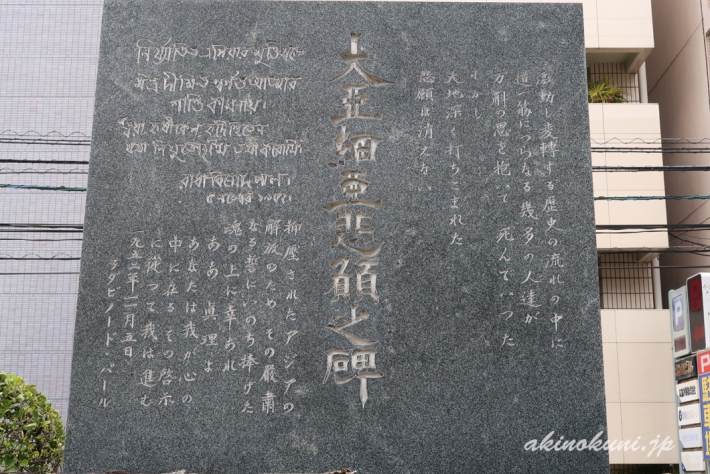 激動し変轉する歴史の流れの中に
道一筋につらなる幾多の人達が
万斛の思を抱いて 死んでいつた
しかし
大地深く打ちこまれた
悲願は消えない
大亞細亞悲願之碑
নির্যাতিত এশিয়ার মুক্তিযজ্ঞে
মন্ত্রদীক্ষিত স্বর্গত আত্মার
শান্তি কামনায়।
ত্বয়া হৃষীকেশ হৃদিস্থিতেন
যথা নিযুক্তোঽস্মি তথা করোমি
রাধাবিনোদ পাল
抑壓されたアジアの
解放のため その嚴肅
なる誓にいのち捧げた
魂の上に幸あれ
ああ 真理よ
あなたは我が心の
中に在る その啓示
に從つて我は進む
一九五二年一一月五日
ラダビノード・パール
akinokuni.jp